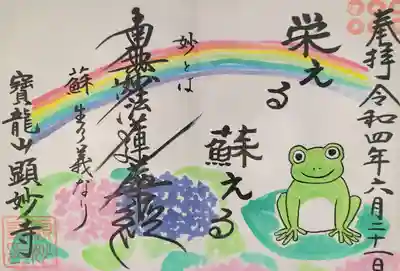 奉拝
令和四年六月二十一日
栄える
蘇える
南無妙法蓮華経
妙とは
蘇生の義なり
寶龍山 顕妙寺